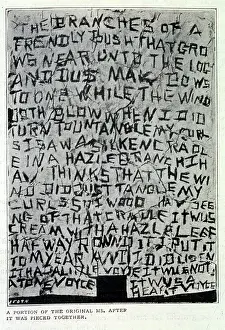 THE BRANCHES OF A
FRENDLY BUSH THAT GRO
WS NEAR UNTO THE
AND I DUS MAK BOWS
TO ONE WHILE THE WIND
DOTH BLOW THEN I DID
TURN TO UNTANGLE MY CURL
S I SAW A SILKEN CRADL
E IN A HAZLE BRANCH I H
AV THINKS THAT THE WI
ND DID JUST TANGLE MY
CURLS SO I WOOD HAV SEE
ING OF THAT CRADLE IT WUS
CREAM WITH A HAZLE LEEF
HALF WAY ROWND IT I PUT IT
TO MY EAR AND I DID LISEN
IT HAD A LITTLE VOYCE IT WUS NOT
HEART VOYCE
A PORTION OF THE ORIGINAL MS. AFTER
IT WAS PIECED TOGETHER.